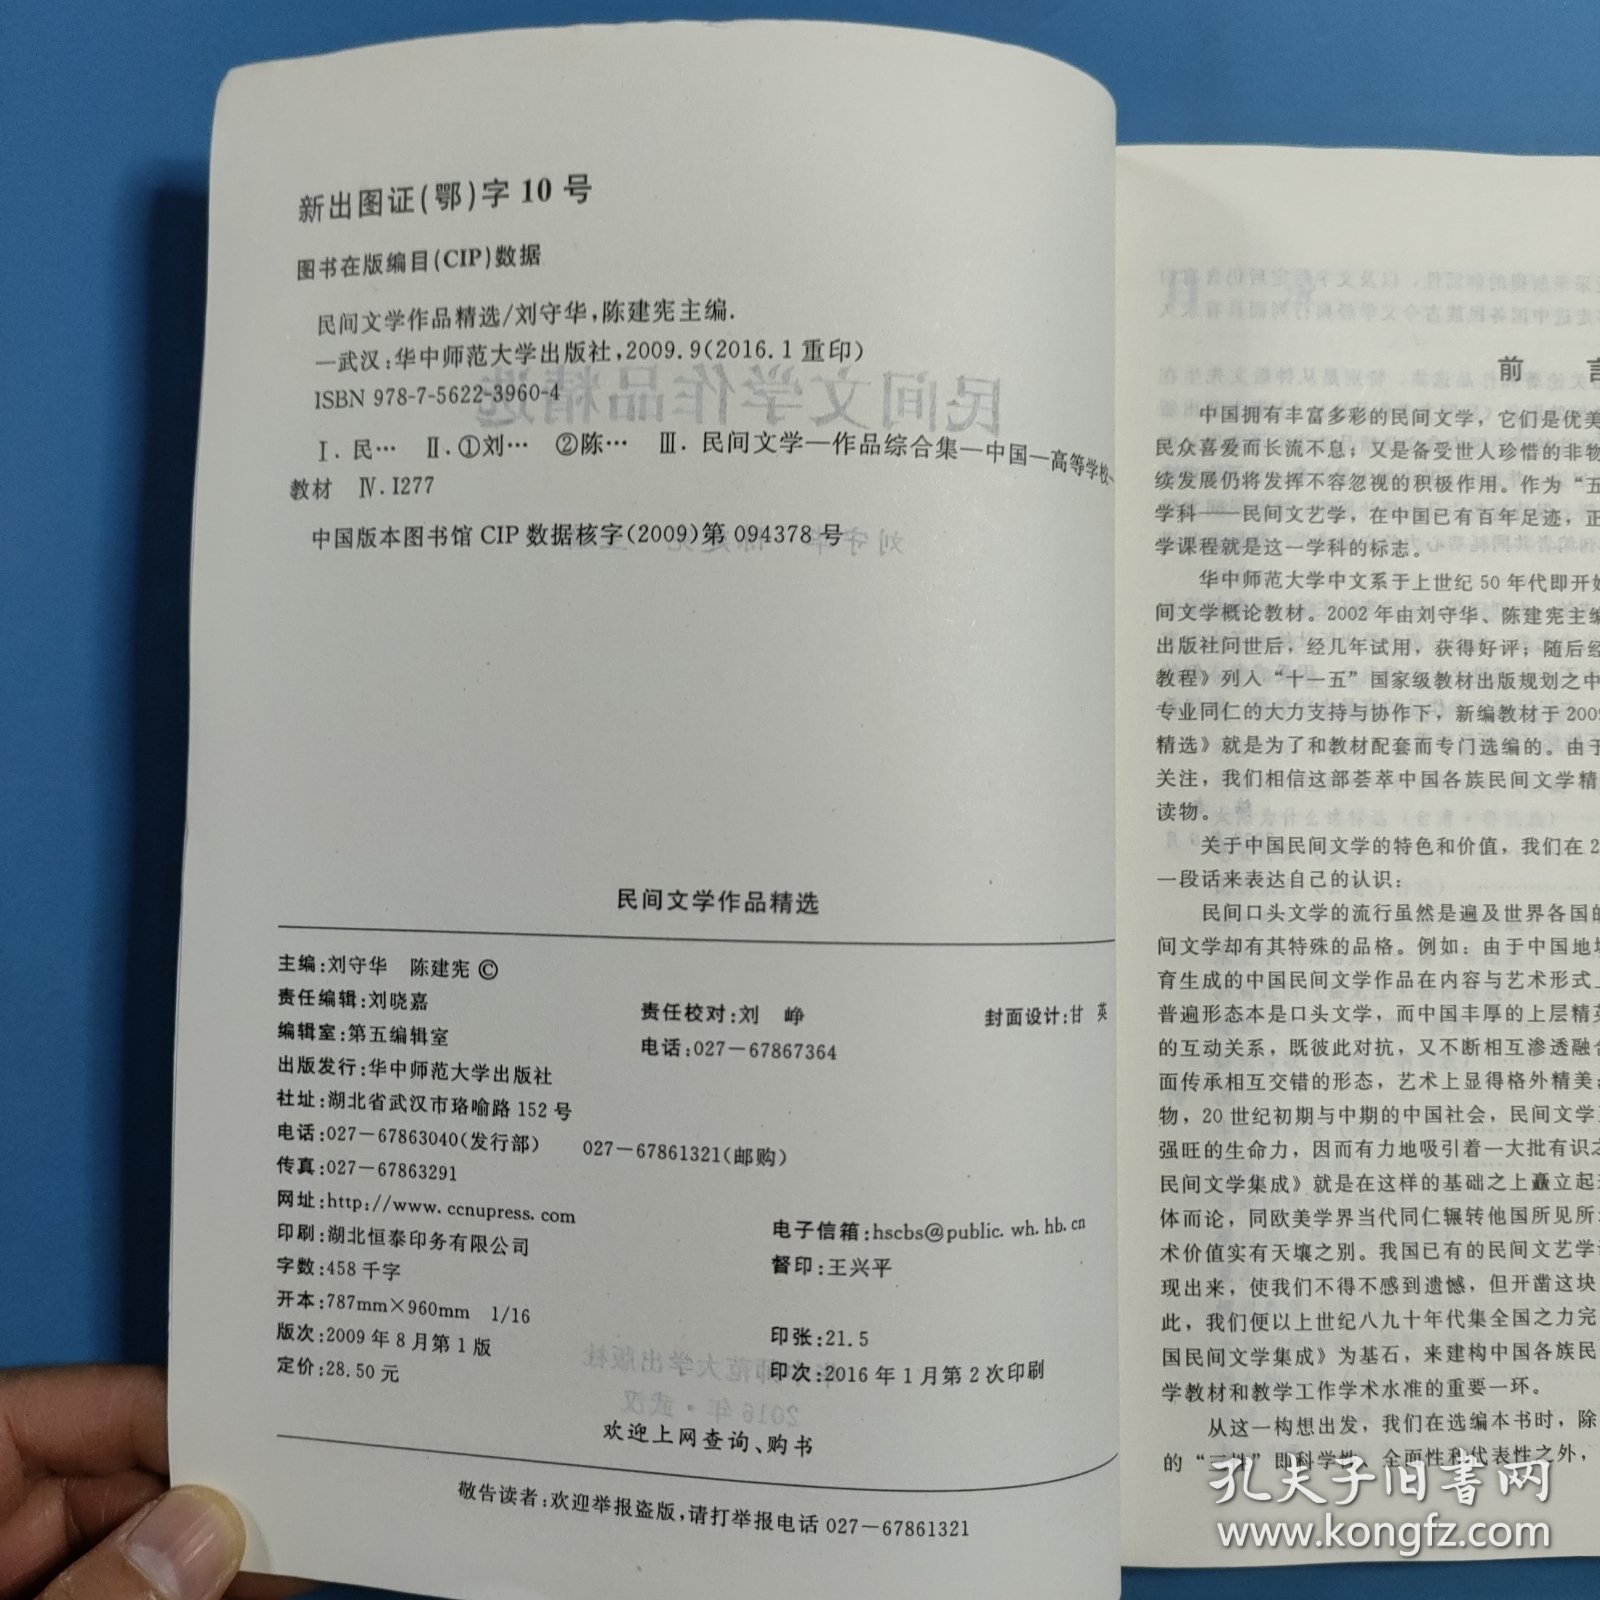 新出图证(鄂)字 10 号
图书在版编目(CIP)数据
民间文学作品精选/刘守华,陈建宪主编.
—武汉:华中师范大学出版社,2009.9(2016.1 重印)
ISBN 978-7-5622-3960-4
Ⅰ. 民… Ⅱ.①刘… ②陈… Ⅲ. 民间文学—作品综合集—中国—高等学校—
教材 Ⅳ. I277
中国版本图书馆 CIP 数据核字(2009)第 094378 号
民间文学作品精选
主编:刘守华 陈建宪 ©
责任编辑:刘晓嘉 责任校对:刘 峥 封面设计:甘 英
编辑室:第五编辑室 电话:027－67867364
出版发行:华中师范大学出版社
社址:湖北省武汉市珞喻路 152 号
电话:027－67863040(发行部) 027－67861321(邮购)
传真:027－67863291
网址:http://www.ccnupress.com 电子信箱:hscbs@public.wh.hb.cn
印刷:湖北恒泰印务有限公司 督印:王兴平
字数:458 千字
开本:787mm×960mm 1/16 印张:21.5
版次:2009 年 8 月第 1 版 印次:2016 年 1 月第 2 次印刷
定价:28.50 元
欢迎上网查询、购书
敬告读者:欢迎举报盗版,请打举报电话 027－67861321
前 言
中国拥有丰富多彩的民间文学，它们是优美
民众喜爱而长流不息；又是备受世人珍惜的非物
续发展仍将发挥不容忽视的积极作用。作为“五
学科——民间文艺学，在中国已有百年足迹，正
学课程就是这一学科的标志。
华中师范大学中文系于上世纪 50 年代即开始
间文学概论教材。2002 年由刘守华、陈建宪主编
出版社问世后，经几年试用，获得好评；随后经
教程》列入“十一五”国家级教材出版规划之中
专业同仁的大力支持与协作下，新编教材于 2009
精选》就是为了和教材配套而专门选编的。由于
关注，我们相信这部荟萃中国各族民间文学精
读物。
关于中国民间文学的特色和价值，我们在 2
一段话来表达自己的认识：
民间口头文学的流行虽然是遍及世界各国的
间文学却有其特殊的品格。例如：由于中国地域
育生成的中国民间文学作品在内容与艺术形式上
普遍形态本是口头文学，而中国丰厚的上层精英
的互动关系，既彼此对抗，又不断相互渗透融合
面传承相互交错的形态，艺术上显得格外精美；
物，20 世纪初期与中期的中国社会，民间文学
强旺的生命力，因而有力地吸引着一大批有识之
民间文学集成》就是在这样的基础之上矗立起
体而论，同欧美学界当代同仁辗转他国所见所
术价值实有天壤之别。我国已有的民间文艺学
现出来，使我们不得不感到遗憾，但开凿这块
此，我们便以上世纪八九十年代集全国之力完
国民间文学集成》为基石，来建构中国各族民
学教材和教学工作学术水准的重要一环。
从这一构想出发，我们在选编本书时，除
的“三性”即科学性、全面性和代表性之外，
孔夫子旧书网
www.kongfz.com